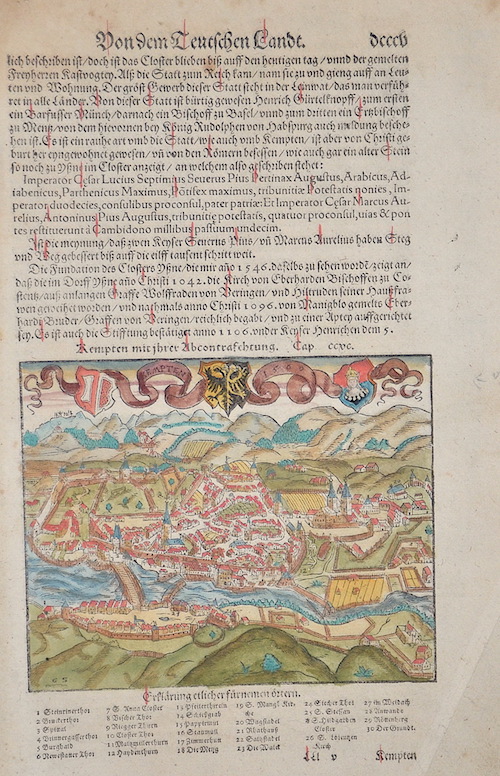 Von dem Teutschen Landt. dcccv
lich beschriben ist/ doch ist das Closter blieben biß auff den heutigen tag/ vnnd der gemelten
Freyherren Kastvogtey. Alß die Statt zum Reich kam/ nam sie zu vnd gieng auff an Leu-
ten vnd Wohnung. Der gröst Gewerb dieser Statt steht in der Leinwat/ das man verfüh-
ret in alle Länder. Von dieser Statt ist bürtig gewesen Henrich Gürtelknopff/ zum ersten
ein Barfüsser Münch/ darnach ein Bischoff zu Basel/ vnnd zum dritten ein Ertzbischoff
zu Mentz/ von dem hievornen bey König Rudolphen von Habspurg auch meldung besche-
hen ist. Es ist ein rauhe art vmb die Statt/ wie auch vmb Kempten/ ist aber von Christi ge-
burt her eyngewohnet gewesen/ vñ von den Römern besessen/ wie auch gar ein alter Stein
so noch zu Yßne im Closter anzeigt/ an welchem also geschriben stehet:
Imperator Cęsar Lucius Septimius Severus Pius Pertinax Augustus, Arabicus, Ad-
iabenicus, Parthenicus Maximus, Põtifex maximus, tribunitiæ Potestatis nonies, Im-
perator duodecies, consulibus proconsul, pater patriæ: Et Imperator Cęsar Marcus Au-
relius, Antoninus Pius Augustus, tribunitię potestatis, quatuor proconsul, uias & pon
tes restituerunt à Cambidono millibus passuum undecim.
Ist die meynung/ daß zwen Keyser Severus Pius/ vñ Marcus Aurelius haben Steg
vnd Weg gebessert biß auff die eilff tausent schritt weit.
Die Fundation des Closters Yßne/ die mir anno 1546. daselbs zu sehen wordē/ zeigt an/
daß die im Dorff Yßne año Christi 1042. die Kirch von Eberharden Bischoffen zu Co-
stentz/ auß anlangen Graffe Wolffraden von Veringen/ vnd Hiltruden seiner Haußfra-
wen geweihet worden/ vnd nachmals anno Christi 1096. von Manigold gemelts Eber-
hards Bruder/ Graffen von Veringen/ reichlich begabt/ vnd zu einer Aptey auffgerichtet
sey. Es ist auch die Stifftung bestätiget anno 1106. vnder Keyser Henrichen dem 5.
Kempten mit jhrer Abcontrafehtung. Cap ccxc.
KEMPTEN
Erklärung etlicher fürnemen örtern.
1 Steinrinerthor
2 Bruckerthor
3 Spittal
4 Illinergasserthor
5 Burghald
6 Newestatter Thor
7 S. Anna Closter
8 Vischer Thor
9 Rieggers Thurn
10 Hafenthurn
11 Mattzeillerthurn
12 Haydenthurn
13 Pfeilerthurn
14 Schießgrab
15 Pappirmül
16 Staumül
17 Zimmerhaw
18 Die Metzg
19 S. Mangl Kir-
che
20 Wagstadel
21 Rhathauß
22 Saltzstadel
23 Die Walck
24 Stecher Thor
25 S. Steffan
28 S. Hildgarden
Closter
26 S. Lorentzen
Kirch
27 im Weidach
28 Auwande
29 Rötenberg
30 Der Grundt.
Lll v Kempten